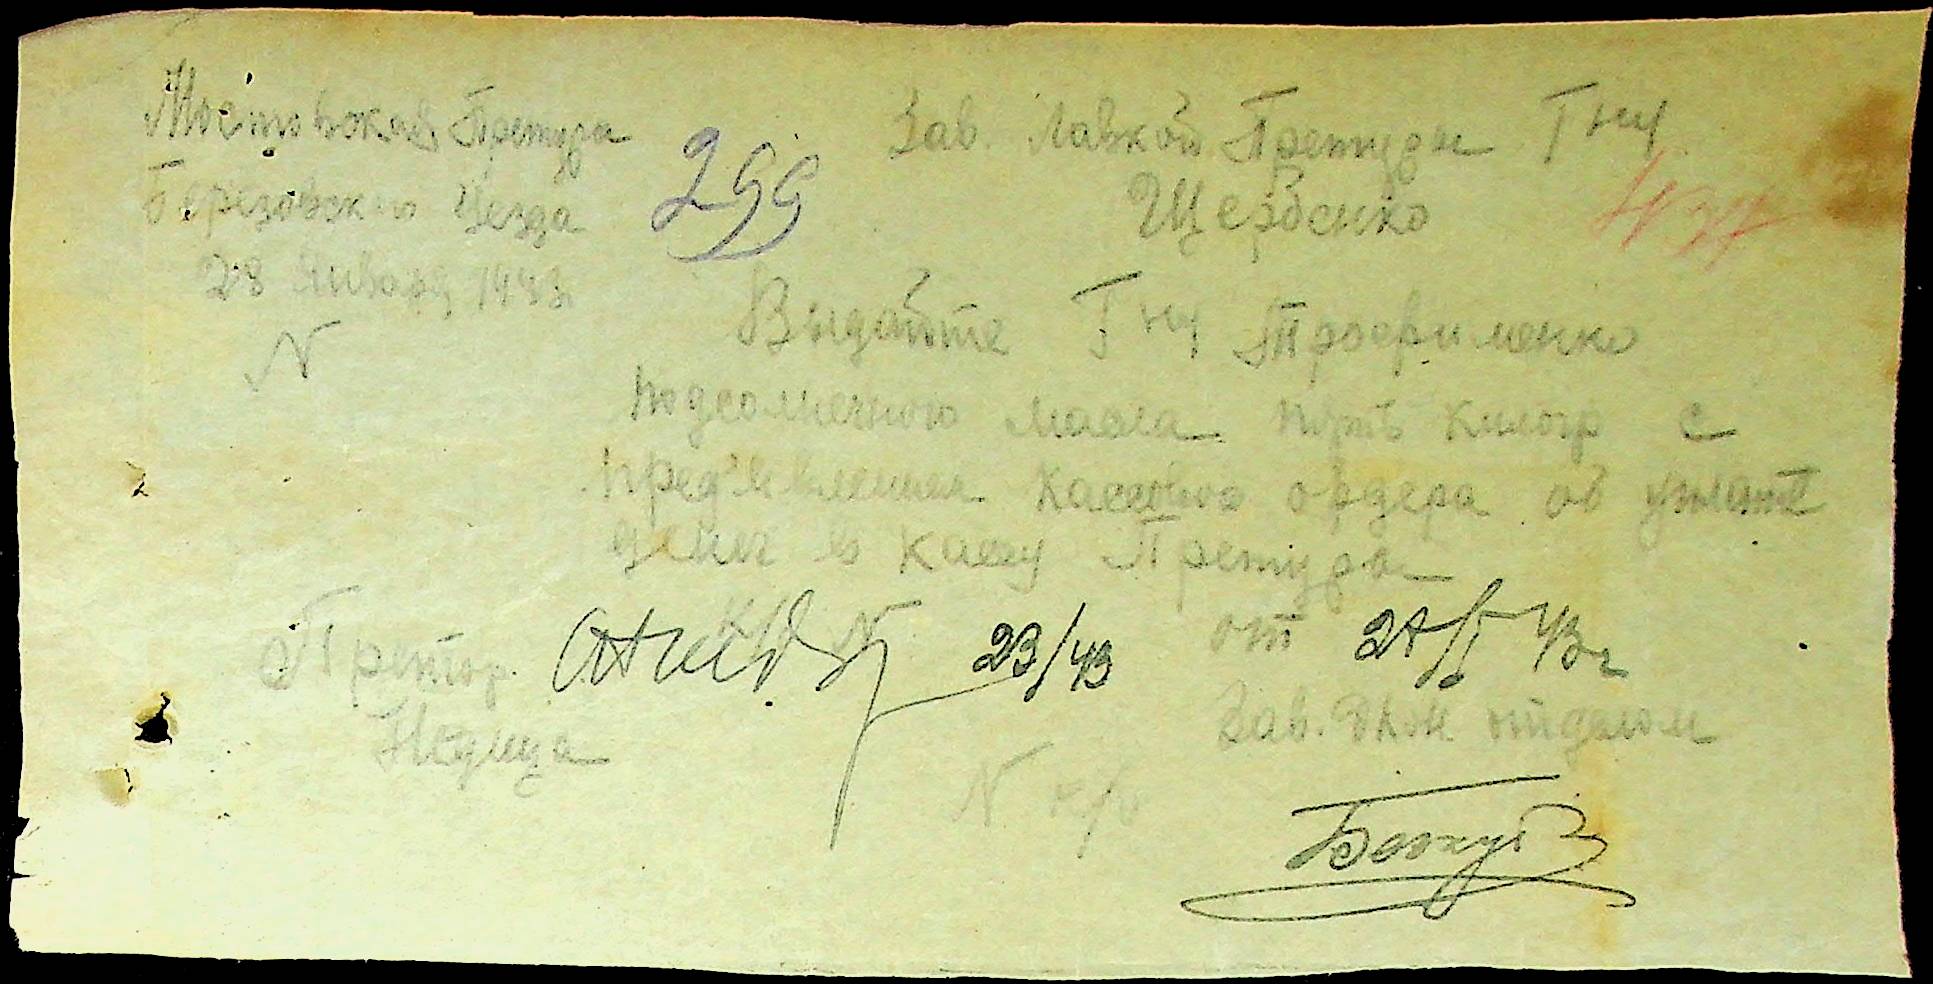 Мостовская Претура
Березовского Уезда
28 Января 1943
N
299
Зав. Лавкой Претуры Г ну
Щербенко
Выдайте Г ну Трофименко
подсолнечного масла пять килогр с
пред'явлением кассового ордера об уплате
денег в кассу Претуры
к/о N 23/43 от 27/I 43 г
Претор
Недица
Зав. отделом
N к/о